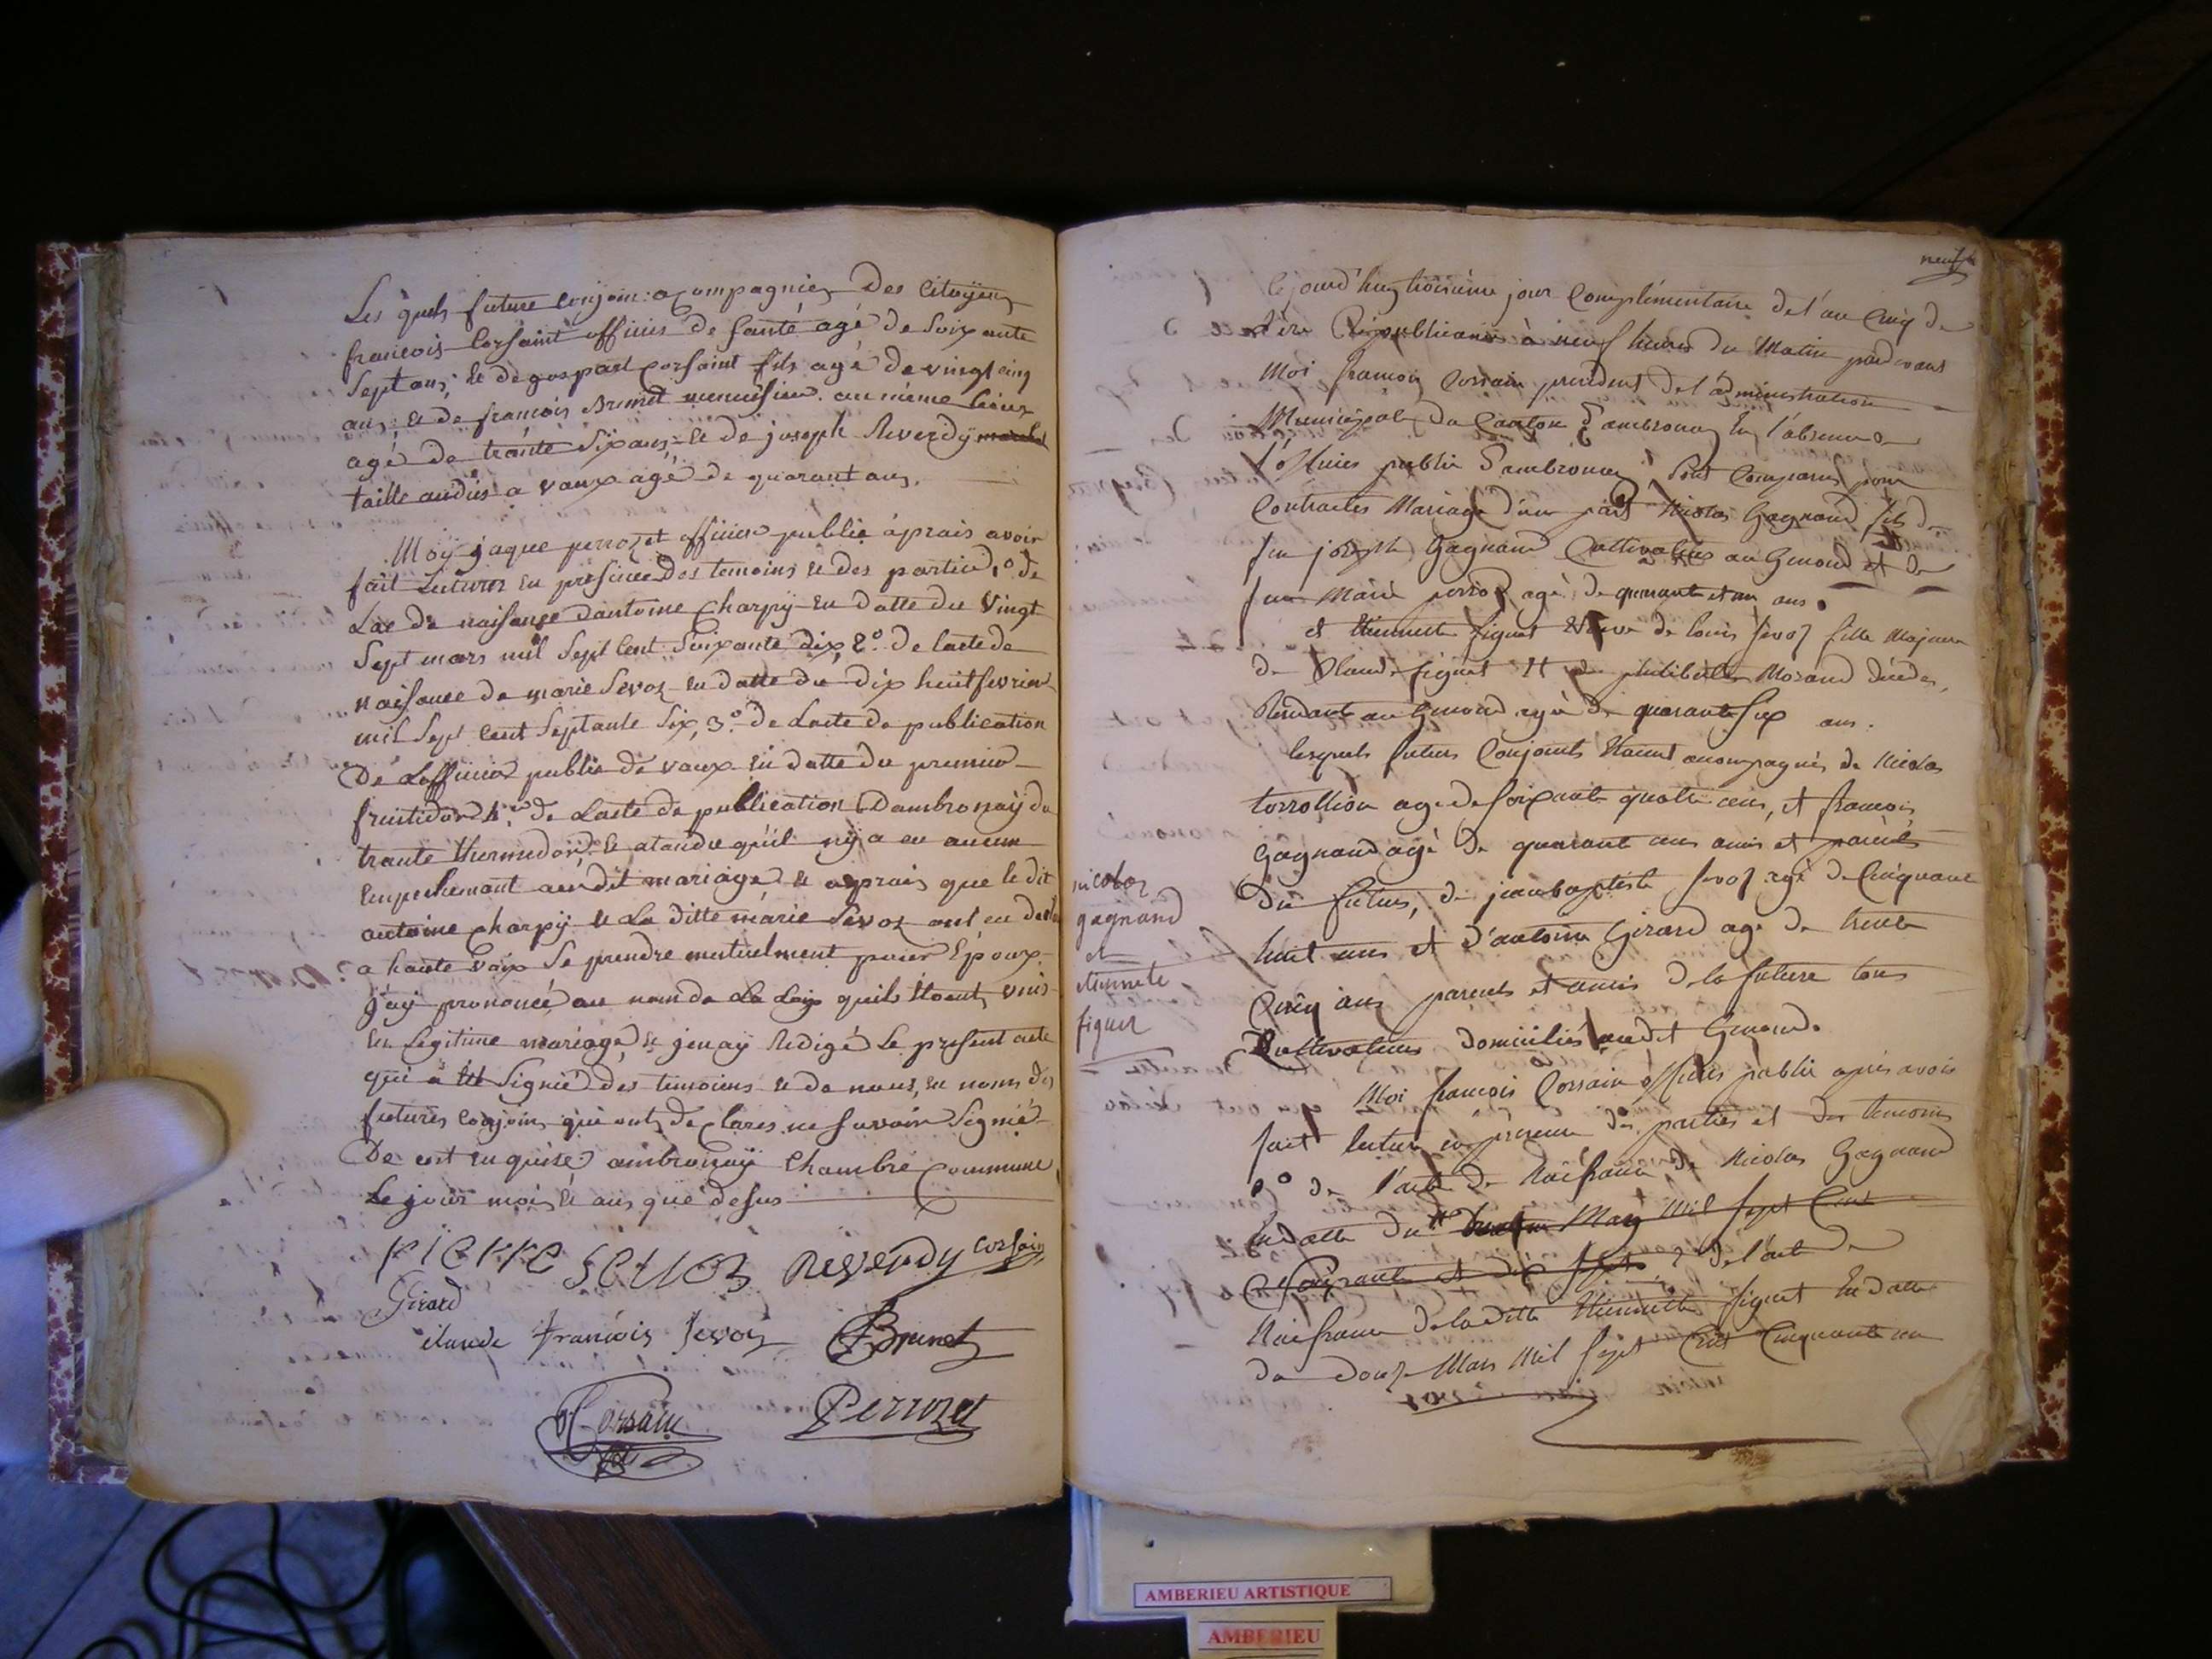 Les quels future conjoin: acompagniez Des Citoyens
francois Corsaint officiés de santé agé de soixante
sept ans; & de gaspart Corsaint fils agé de vingt cinq
ans; & de francois Brunet menuisier au même lieux
agé de trante six ans; & de joseph Reverdÿ
taille audiés a vaux agé de quarant ans.
Moÿ jaque perrozet officier public áprais avoir
fait Lectures en presence des temoins & des partied, 1o de
Lac de naisange dantoine Charpÿ en datte du vingt
sept mars mil sept cent soixante dix, 2o. de lacte de
naisance de marie Sevoz en datte du dix huit fevrier
mil sept cent septante six, 3o. de Lacte de publication
De Lofficier public de vaux en datte du premier
fruitidor 4o. de Lacte de publication Dambronaÿ du
trante thermidor & atandu qu'il nÿ a eu aucun
Empechemant audit mariage & aprais que le dit
antoine Charpÿ & La ditte marie Sevoz ont eu declaré
a haute voix se prendre mutuelment pour Epoux
j'aÿ prononcé au nom de La Loÿ quils Etoent, unis
En Legitime mariage & jenaÿ Redigé Le present acte
qui a été signié des temoins & de nous, en noms des
futures conjoins qui ont declares ne savoir signié
De ent enquise: ambronaÿ Chambre Commune
Le jour mois & ans que desus
PIERRE SEVOZ Reverdy Corsain
Girard
claude francois Sevoz Brunet
Corsain Perrozet
neuf
Cejourd'huy troisième jour Complémentaire de l'an Cinq de
l'ère Republicaine à neuf heures du Matin pardevant
Moi francois Corsain president de l'administration
Municipale du Canton d'ambronay En l'absence de
l'officier public d'ambronay, sont comparus pour
Contracter Mariage d'une part Nicolas Gagnand fils de
feu joseph Gagnand Cultivateur au Genoud et de
feue Marie perroz agé de quarante et un ans.
et Etiennette figuet Veuve de louis Sevoz fille Majeure
de Claude figuet et de philiberte Morand décédés,
Residante au Genoud agée de quarante six ans.
lesquels futurs Conjoints Etaient accompagnés de Nicolas
torrollion agé de soixante quatre ans, et francois
Gagnand agé de quarante ans amis et parents
Du futur, de jean baptiste Sevoz agé de Cinquante
huit ans et d'antoine Girard agé de trente
Cinq ans parents et amis de la future tous
Cultivateurs domiciliés audit Genoud.
Moi francois Corsain officier public après avoir
fait lecture en presence des parties et des temoins
1o de l'acte de Naissance de Nicolas Gagnand
En datte du May Mil sept Cent
Cinquante et dix sept 2o de l'acte de
Naissance de la ditte Etiennette figuet En datte
du douze Mars Mil sept Cent Cinquante un
nicolas
gagnand
et
etiennete
figuet
AMBERIEU ARTISTIQUE
AMBERIEU